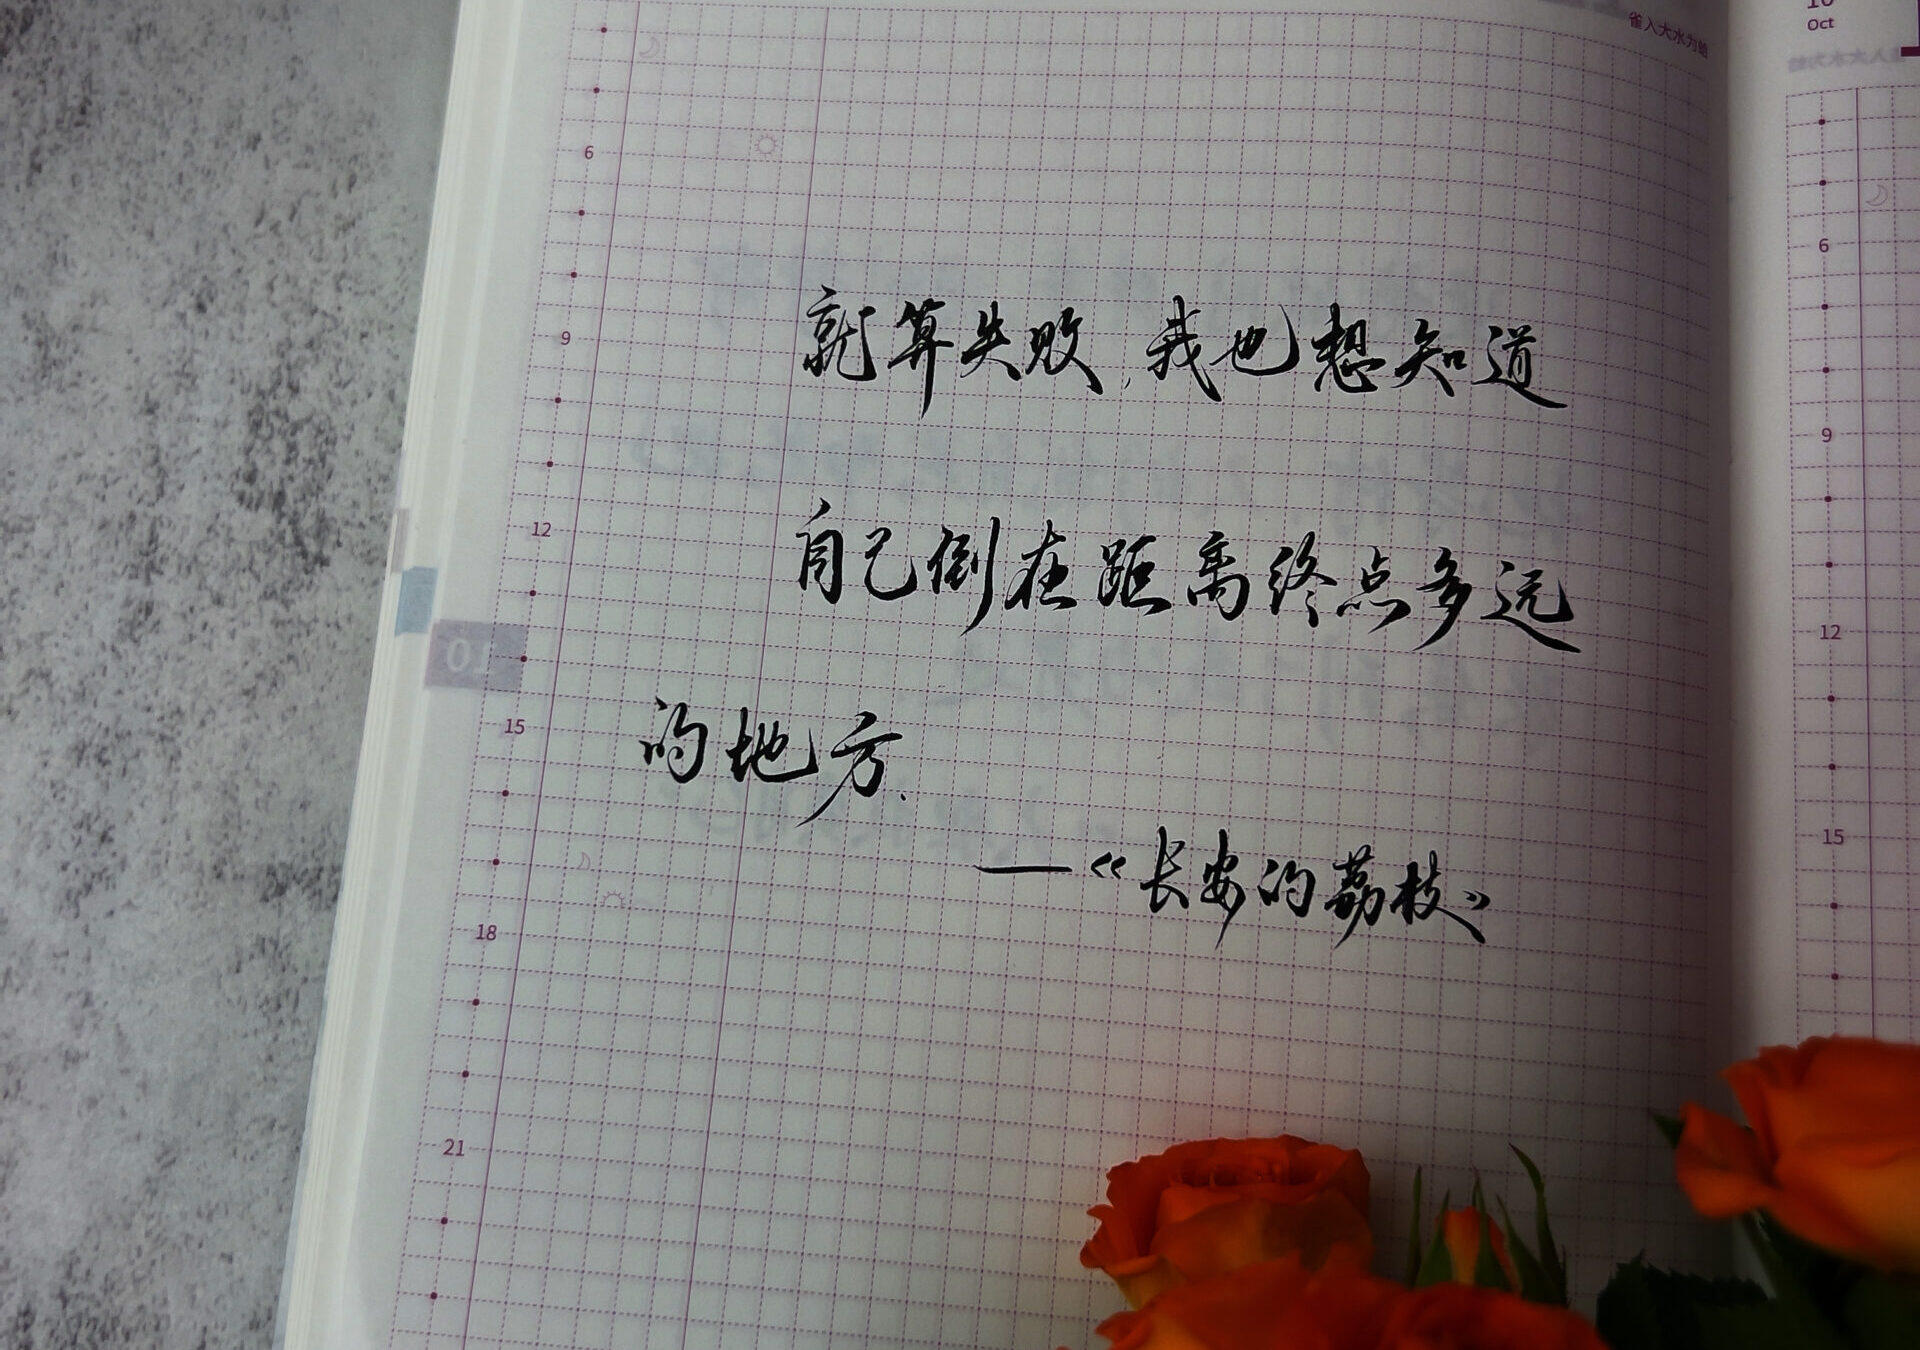 雀入大水为蛤
10
Oct
6
9
12
15
18
21
6
9
12
15
就算失败,我也想知道
自己倒在距离终点多远
的地方.
——《长安的荔枝》